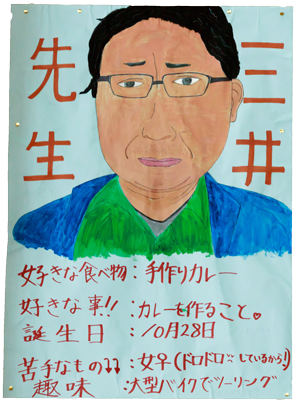 三井
先生
好きな食べ物：手作りカレー
好きな事!!：カレーを作ること。
誕生日：10月28日
苦手なもの↓↓：女子(ドロドロ しているから!)
趣味：大型バイクでツーリング